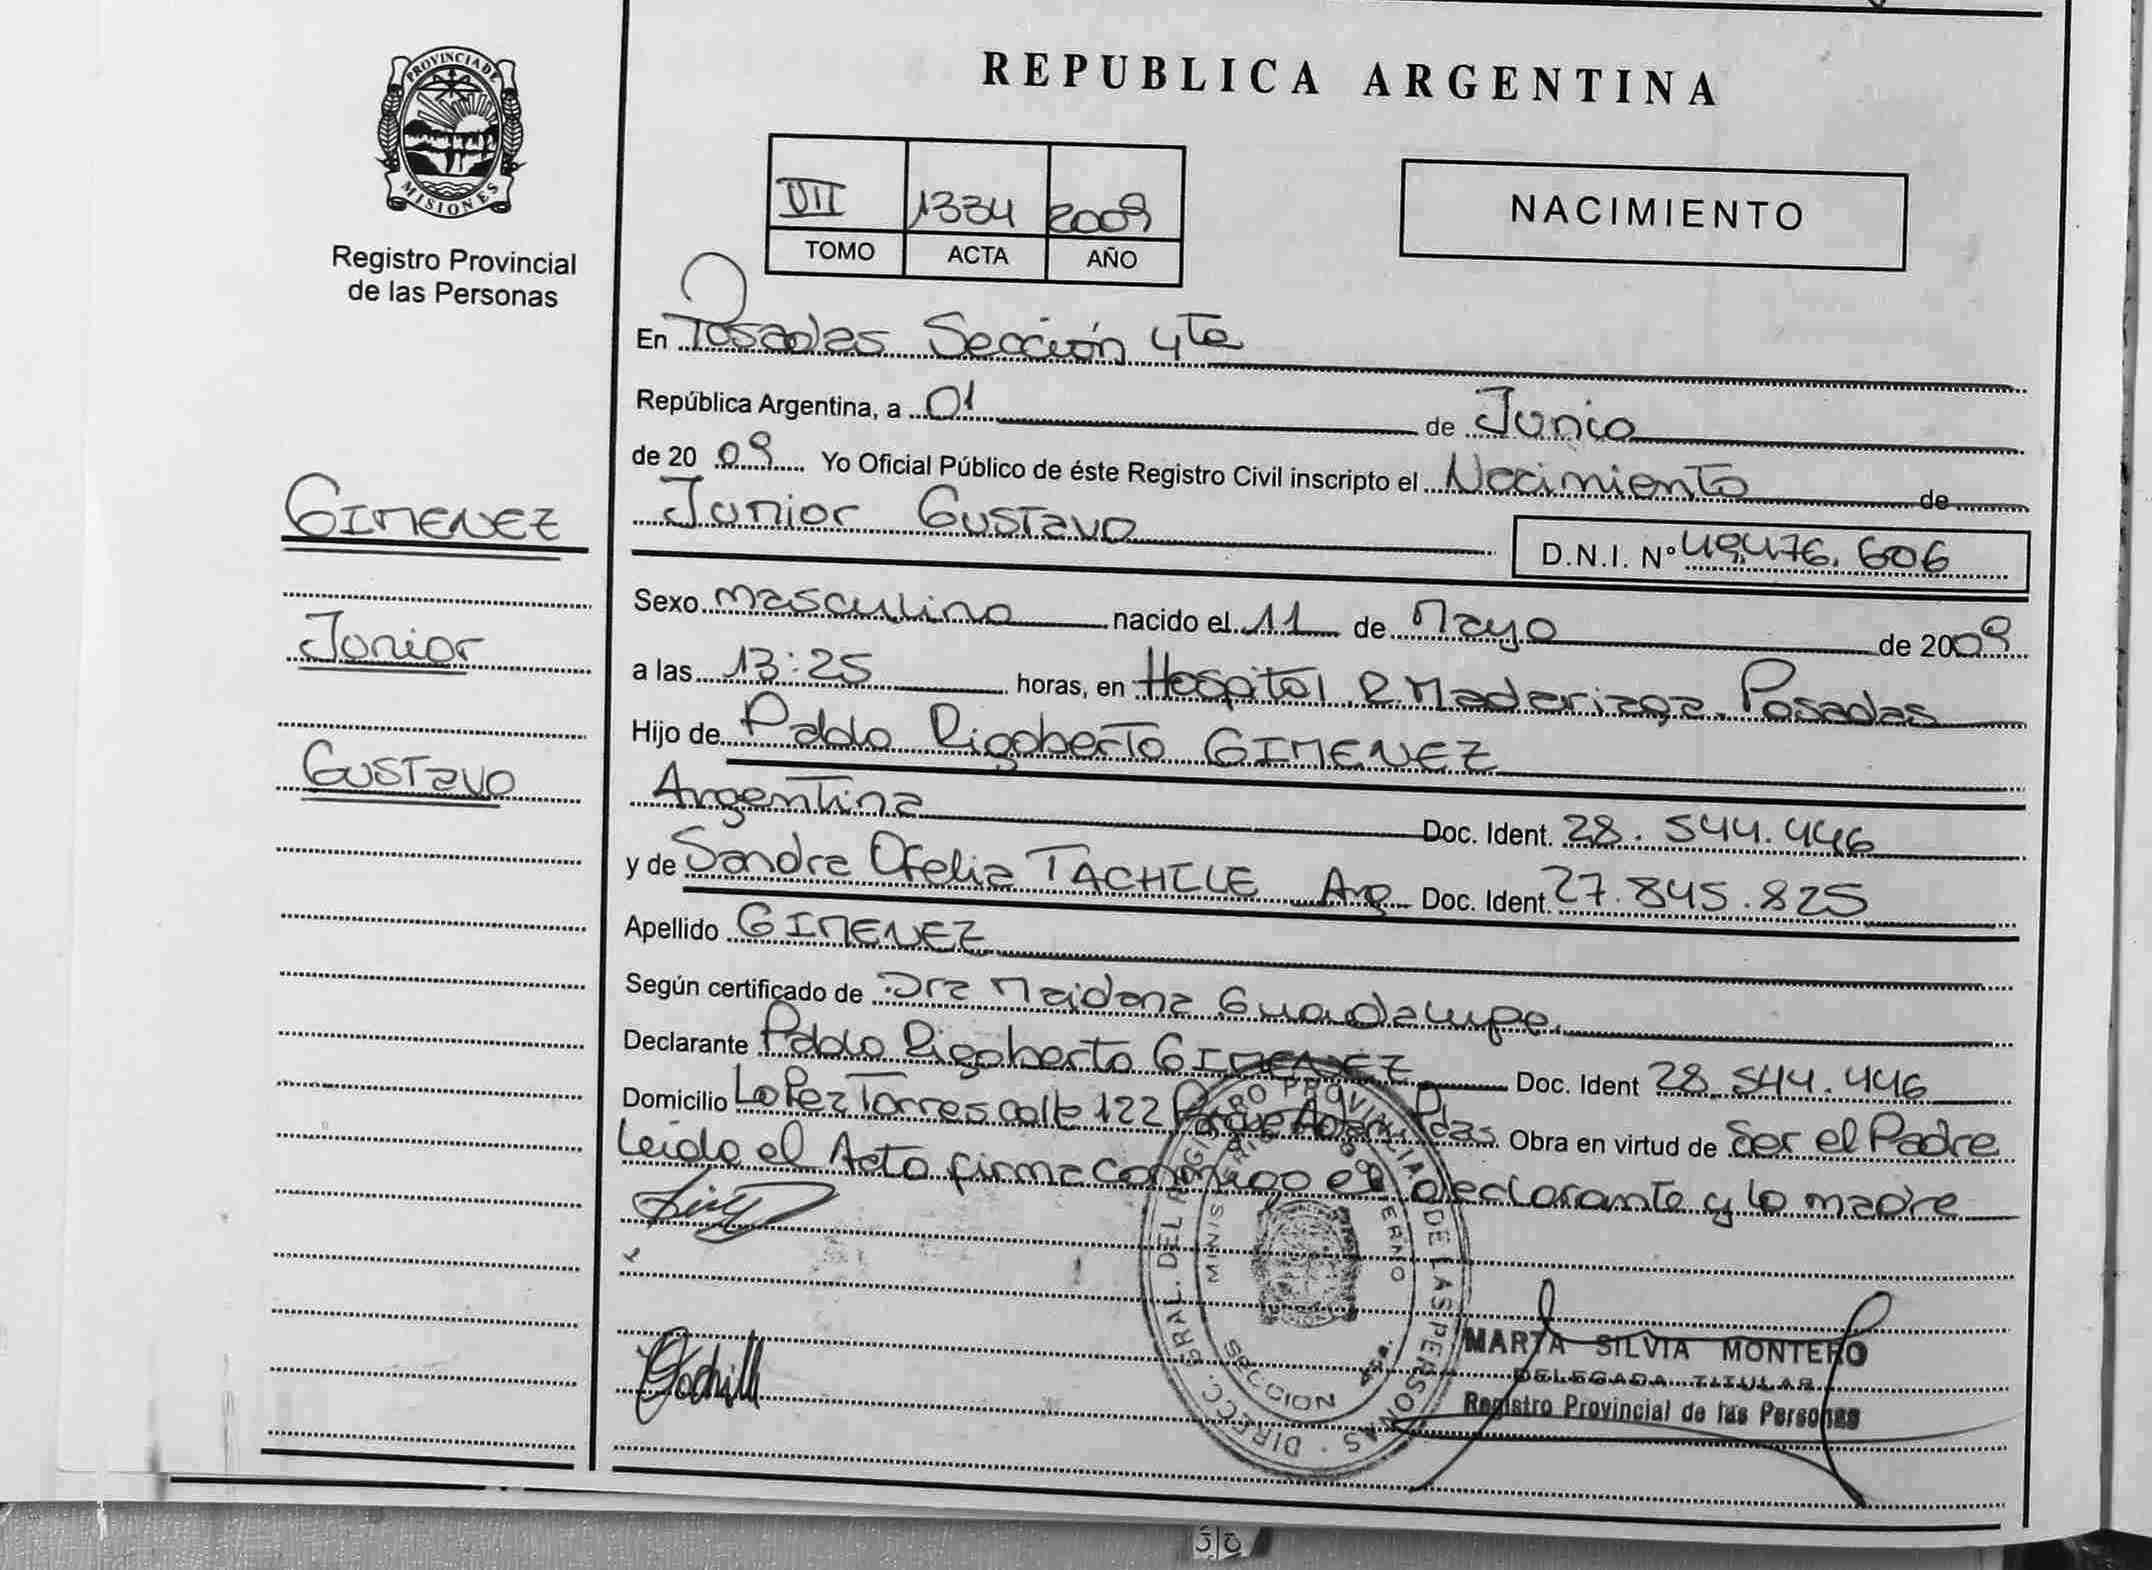 PROVINCIA DE
MISIONES
Registro Provincial
de las Personas
GIMENEZ
Junior
Gustavo
REPUBLICA ARGENTINA
VII 1334 2009
TOMO ACTA AÑO
NACIMIENTO
En Posadas Sección 4ta
República Argentina, a 01 de Junio
de 2009 Yo Oficial Público de éste Registro Civil inscripto el Nacimiento de
Junior Gustavo
D.N.I. Nº 49.476.606
Sexo masculino nacido el 11 de Mayo de 2009
a las 13:25 horas, en Hospital R. Madariaga. Posadas
Hijo de Pablo Rigoberto GIMENEZ
Argentina Doc. Ident. 28.544.446
y de Sandra Ofelia TACHILE Arg Doc. Ident. 27.845.825
Apellido GIMENEZ
Según certificado de Dra Maidana Guadalupe.
Declarante Pablo Rigoberto GIMENEZ Doc. Ident 28.544.446
Domicilio Lopez Torres calle 122 Pdas Obra en virtud de ser el Padre
Leído el Acta firma conmigo el declarante y la madre
DIRECC. GRAL. DEL REGISTRO PROVINCIAL DE LAS PERSONAS
MINISTERIO GOBIERNO
SECCION
MARTA SILVIA MONTERO
DELEGADA TITULAR
Registro Provincial de las Personas